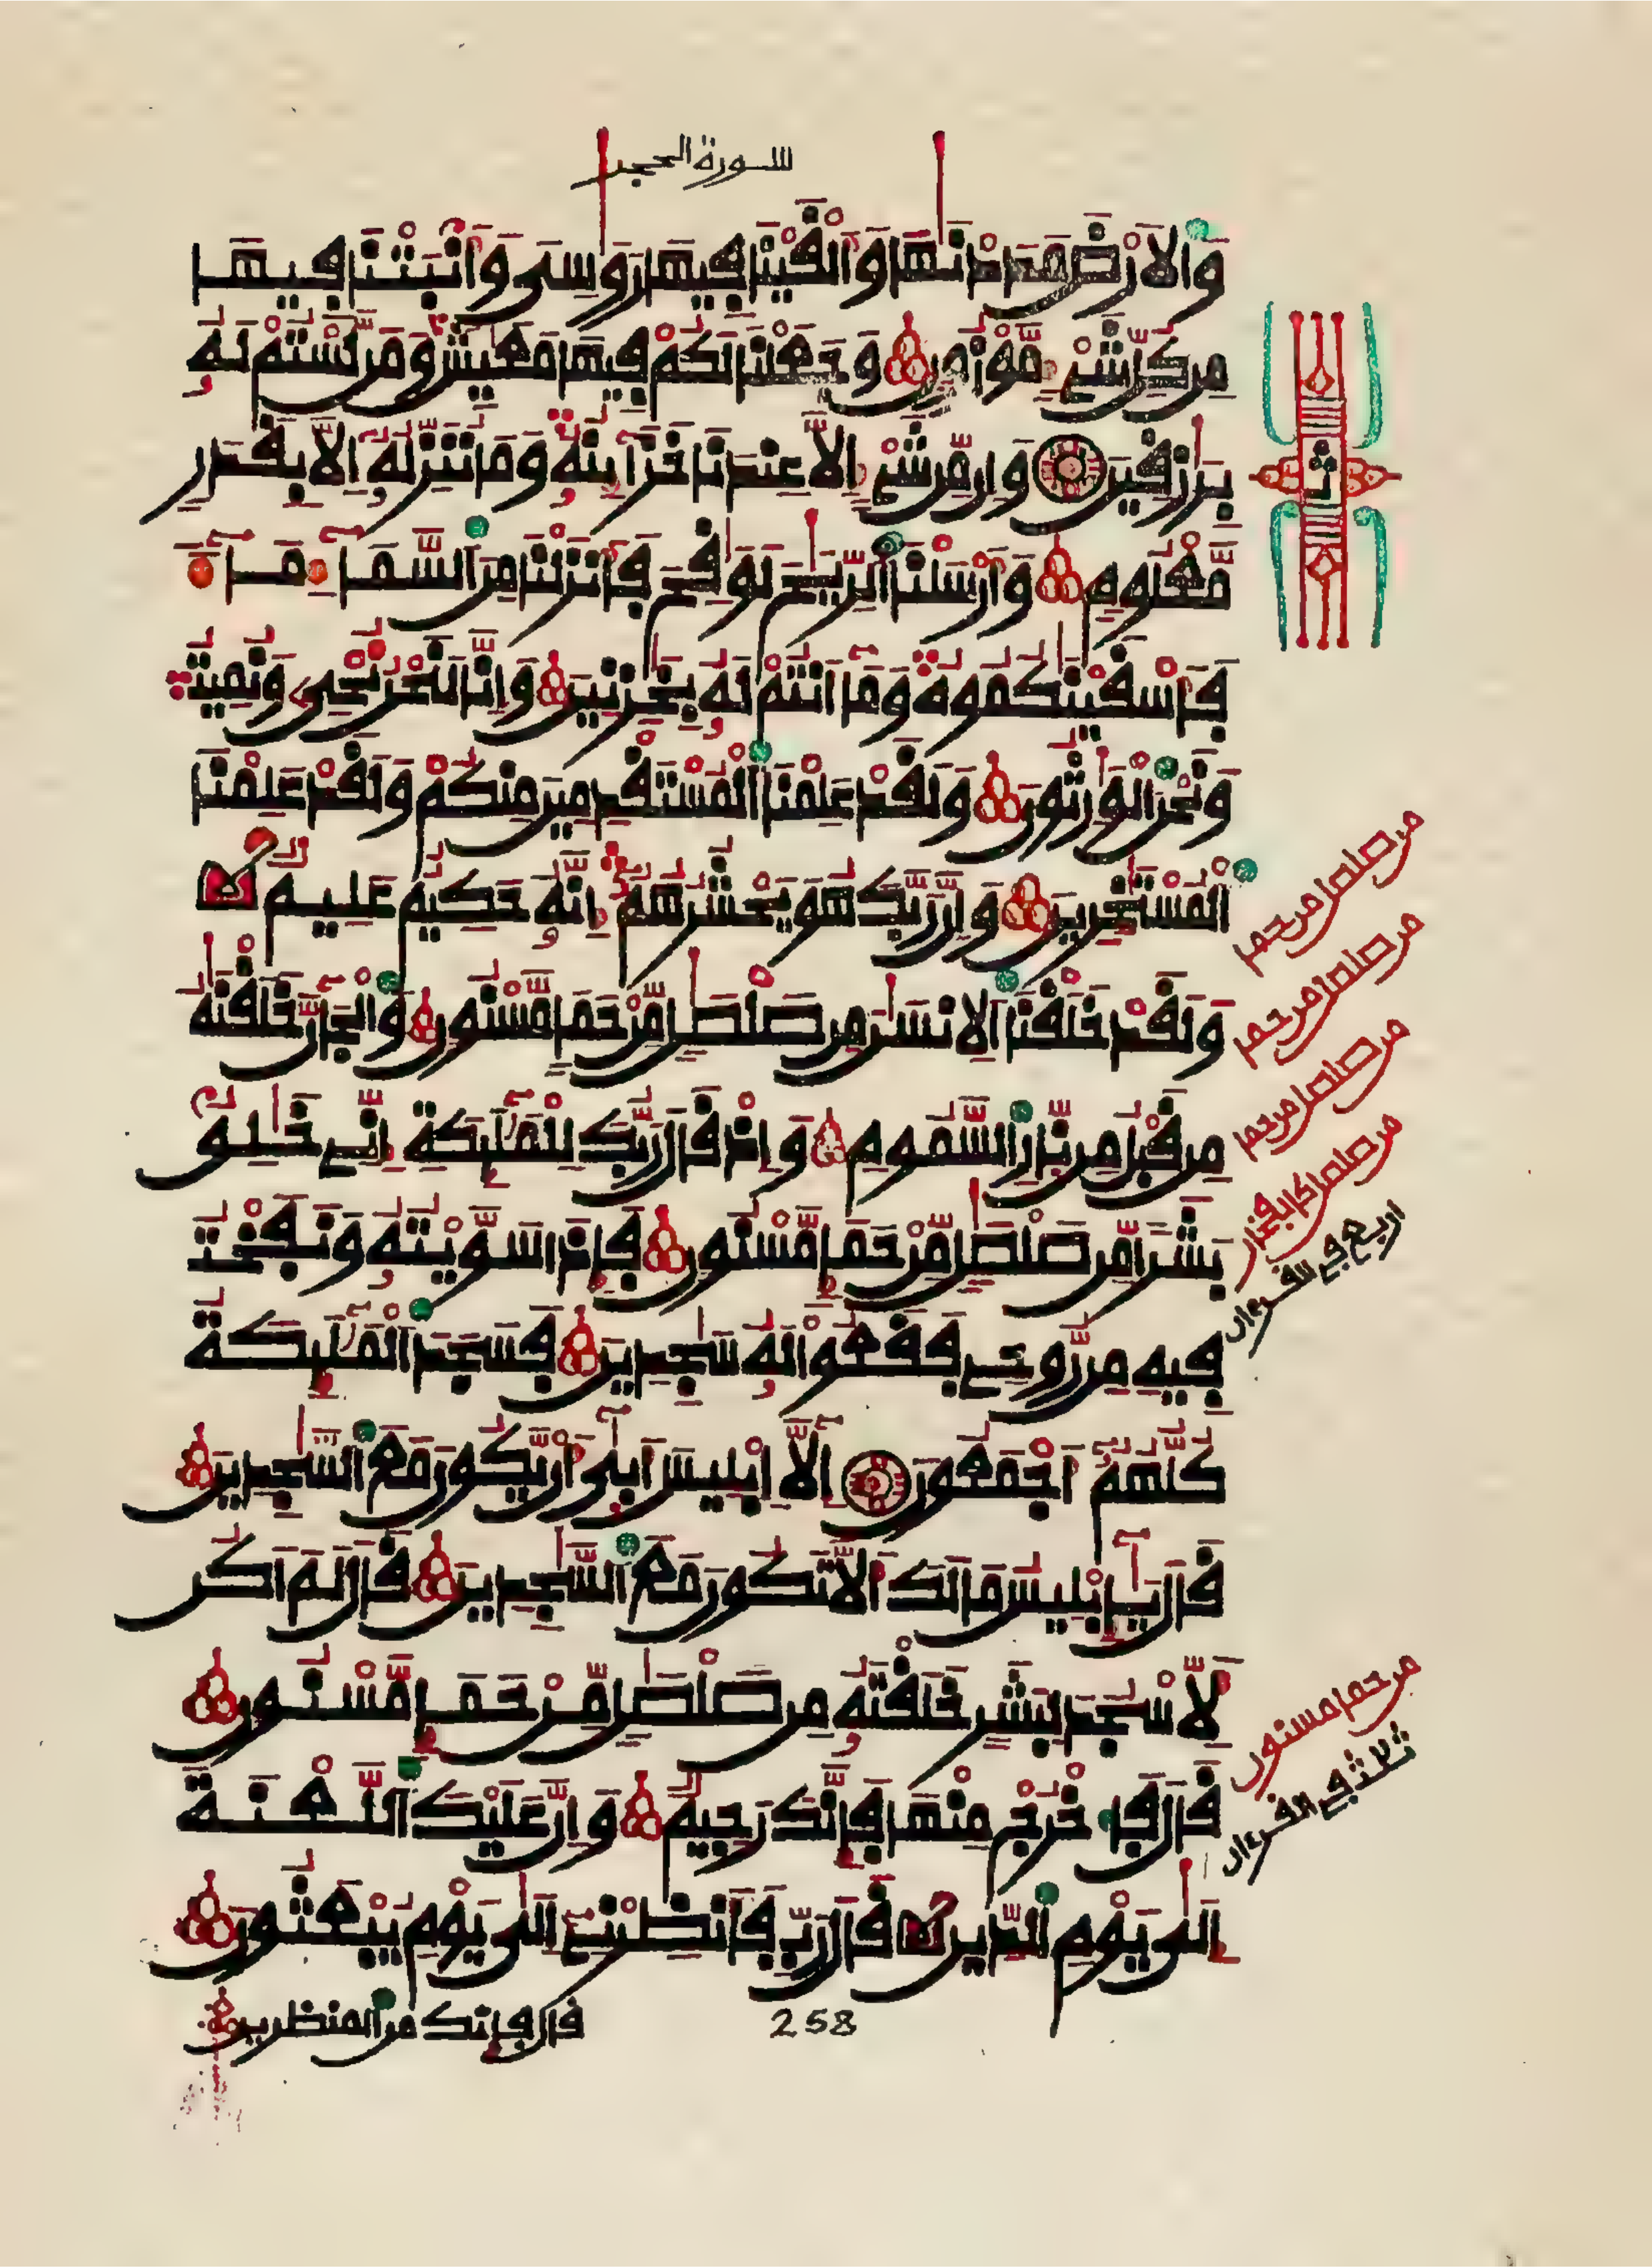 سورة الحجر
وَالَارْضَ مَدَدْنَٰهَا وَأَلْقَيْنَا فِيهَا رَوَٰسِىَ وَأَنۢبَتْنَا فِيهَا
مِن كُلِّ شَىْءٍ مَّوْزُونٍ وَجَعَلْنَا لَكُمْ فِيهَا مَعَٰيِشَ وَمَن لَّسْتُمْ لَهُۥ
بِرَٰزِقِينَ وَإِن مِّن شَىْءٍ إِلَّا عِندَنَا خَزَآئِنُهُۥ وَمَا نُنَزِّلُهُۥٓ إِلَّا بِقَدَرٍ
مَّعْلُومٍ وَأَرْسَلْنَا ٱلرِّيَٰحَ لَوَٰقِحَ فَأَنزَلْنَا مِنَ ٱلسَّمَآءِ مَآءً
فَأَسْقَيْنَٰكُمُوهُ وَمَآ أَنتُمْ لَهُۥ بِخَٰزِنِينَ وَإِنَّا لَنَحْنُ نُحْىِۦ وَنُمِيتُ
وَنَحْنُ ٱلْوَٰرِثُونَ وَلَقَدْ عَلِمْنَا ٱلْمُسْتَقْدِمِينَ مِنكُمْ وَلَقَدْ عَلِمْنَا
ٱلْمُسْتَـْٔخِرِينَ وَإِنَّ رَبَّكَ هُوَ يَحْشُرُهُمُۥٓ إِنَّهُۥ حَكِيمٌ عَلِيمٌ
وَلَقَدْ خَلَقْنَا ٱلِانسَٰنَ مِن صَلْصَٰلٍ مِّنْ حَمَإٍ مَّسْنُونٍ وَٱلْجَآنَّ خَلَقْنَٰهُ
مِن قَبْلُ مِن نَّارِ ٱلسَّمُومِ وَإِذْ قَالَ رَبُّكَ لِلْمَلَٰٓئِكَةِ إِنِّى خَٰلِقٌۢ
بَشَرًا مِّن صَلْصَٰلٍ مِّنْ حَمَإٍ مَّسْنُونٍ فَإِذَا سَوَّيْتُهُۥ وَنَفَخْتُ
فِيهِ مِن رُّوحِى فَقَعُوا لَهُۥ سَٰجِدِينَ فَسَجَدَ ٱلْمَلَٰٓئِكَةُ
كُلُّهُمُۥٓ أَجْمَعُونَ إِلَّآ إِبْلِيسَ أَبَىٰٓ أَن يَّكُونَ مَعَ ٱلسَّٰجِدِينَ
قَالَ يَٰٓإِبْلِيسُ مَا لَكَ أَلَّا تَكُونَ مَعَ ٱلسَّٰجِدِينَ قَالَ لَمَ اَكُن
لِّأَسْجُدَ لِبَشَرٍ خَلَقْتَهُۥ مِن صَلْصَٰلٍ مِّنْ حَمَإٍ مَّسْنُونٍ
قَالَ فَٱخْرُجْ مِنْهَا فَإِنَّكَ رَجِيمٌ وَإِنَّ عَلَيْكَ ٱللَّعْنَةَ
إِلَىٰ يَوْمِ ٱلدِّينِ قَالَ رَبِّ فَأَنظِرْنِىٓ إِلَىٰ يَوْمِ يُبْعَثُونَ
قال فإنك من المنظرين
258
ثمن
من صلصل من حما
من صلصل من حما
من صلصل من حما
من صلصل كالفخار
اربع في القرءان
من حما مسنون
ثلاث في القرءان